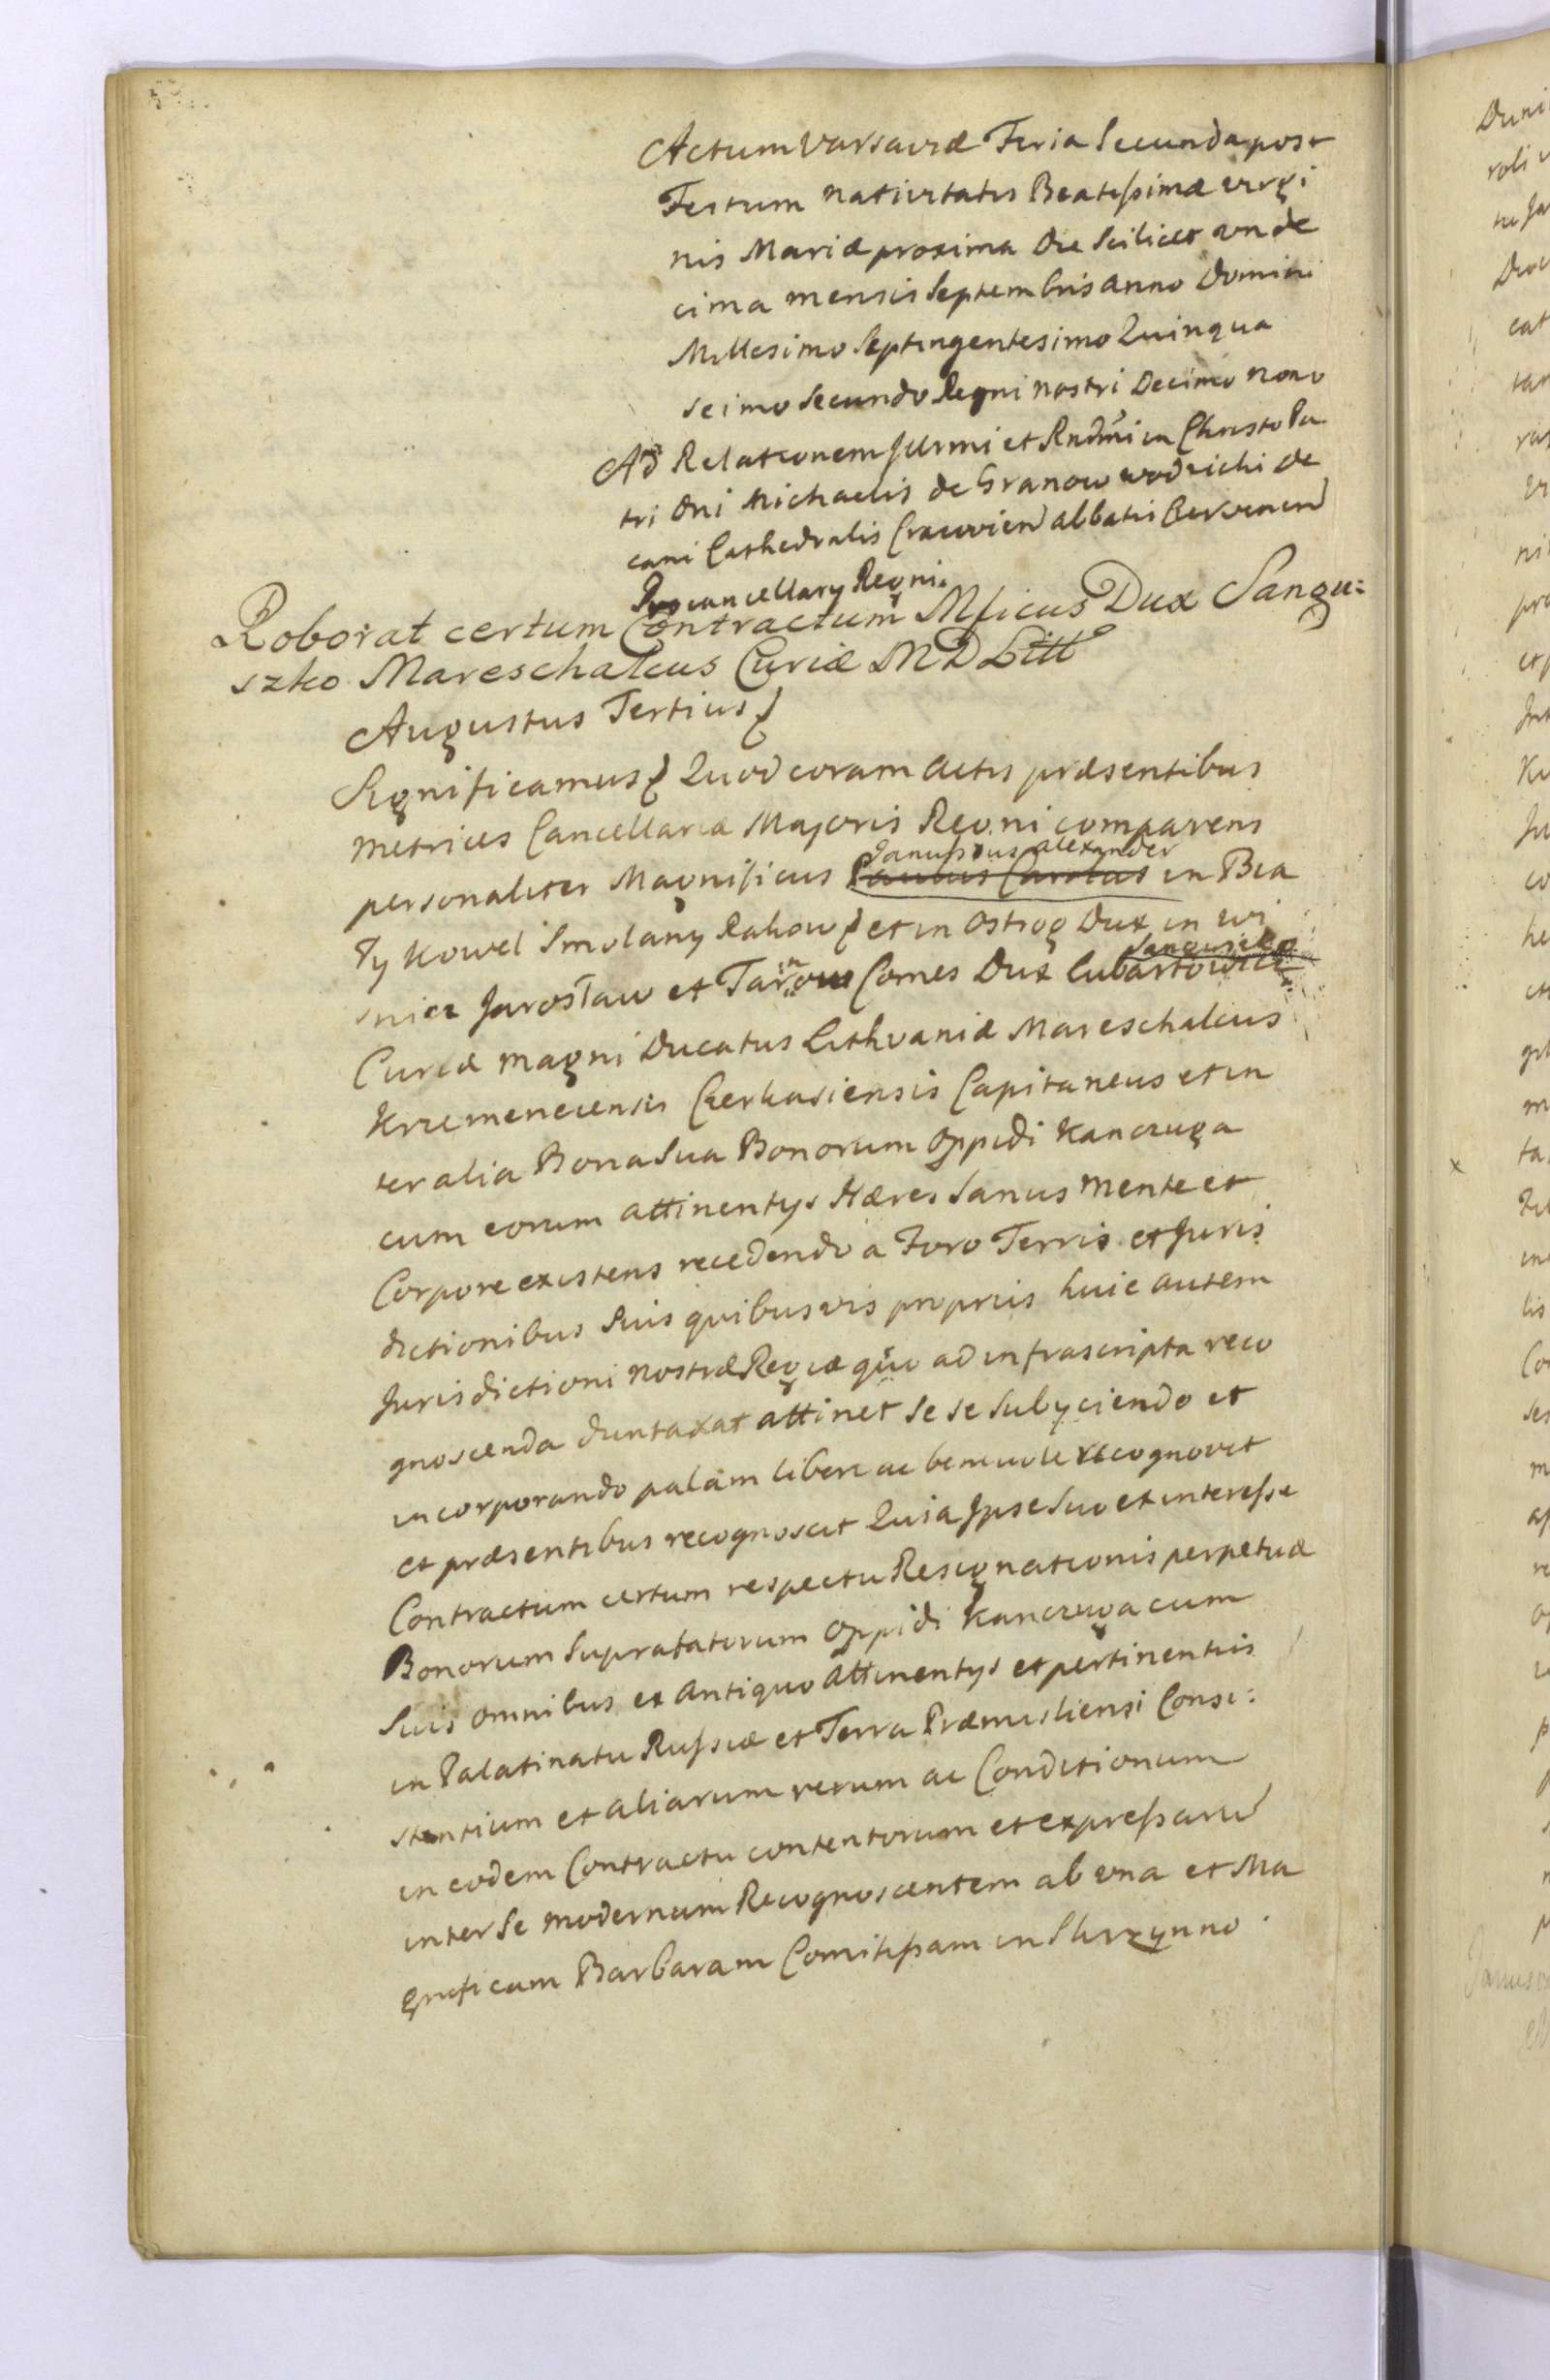 Actum Varsaviæ Feria Secunda post
Festum nativitatis Beatissimæ virgi
nis Mariæ proxima Die Scilicet vnde
cima mensis Septembris anno Domini
Millesimo Septingentesimo Quinqua
seimo secundo Regni nostri Decimo nono
Ad Relationem Jllrmi et Rndmi in Christo Pa
tri Dni Michaelis de Granow wodzicki de
cani Cathedralis Cracovien abbatis Czervenen
Procancellary Regni.
Roborat certum Contractum Mficus Dux Sangu:
szko Mareschalcus Curiæ M D Litt
Augustus Tertius
Significamus Quod coram Actis præsentibus
metrices Cancellariæ Majoris Regni comparens
Janussius alexander
personaliter Magnificus Paulus Carolus in Bia
ły Kowel Smolany Rakow et in Ostrog Dux in wi
Sanguszko
snicz Jarosław et Tarnow Comes Dux Lubartowicz
Curiæ magni Ducatus Lithvaniæ Mareschalcus
Krzemenecensis Czerkasiensis Capitaneus et in
ter alia Bona Sua Bonorum Oppidi Kanczuga
cum eorum attinentys Hæres Sanus mente et
Corpore existens recedendo a Foro Terris et Juris
dictionibus Suis quibusvis propriis huic autem
Jurisdictioni nostræ Regiæ quo ad infrascripta reco
gnoscenda duntaxat attinet se se subyciendo et
incorporando palam libere ac benevole recognovit
et præsentibus recognoscit Quia Jpse Suo et interesse
Contractum certum respectu Resignationis perpetuæ
Bonorum Supratatorum Oppidi Kanczuga cum
Suis omnibus ex Antiquo Attinentys et pertinentiis
in Palatinatu Russiæ et Terra Præmisliensi Consi:
stentium et aliarum rerum ac Conditionum
in eodem Contractu contentorum et expressaru
inter Se modernum Recognoscentem ab vna et Ma
gnificam Barbaram Comitissam in Skrzynno